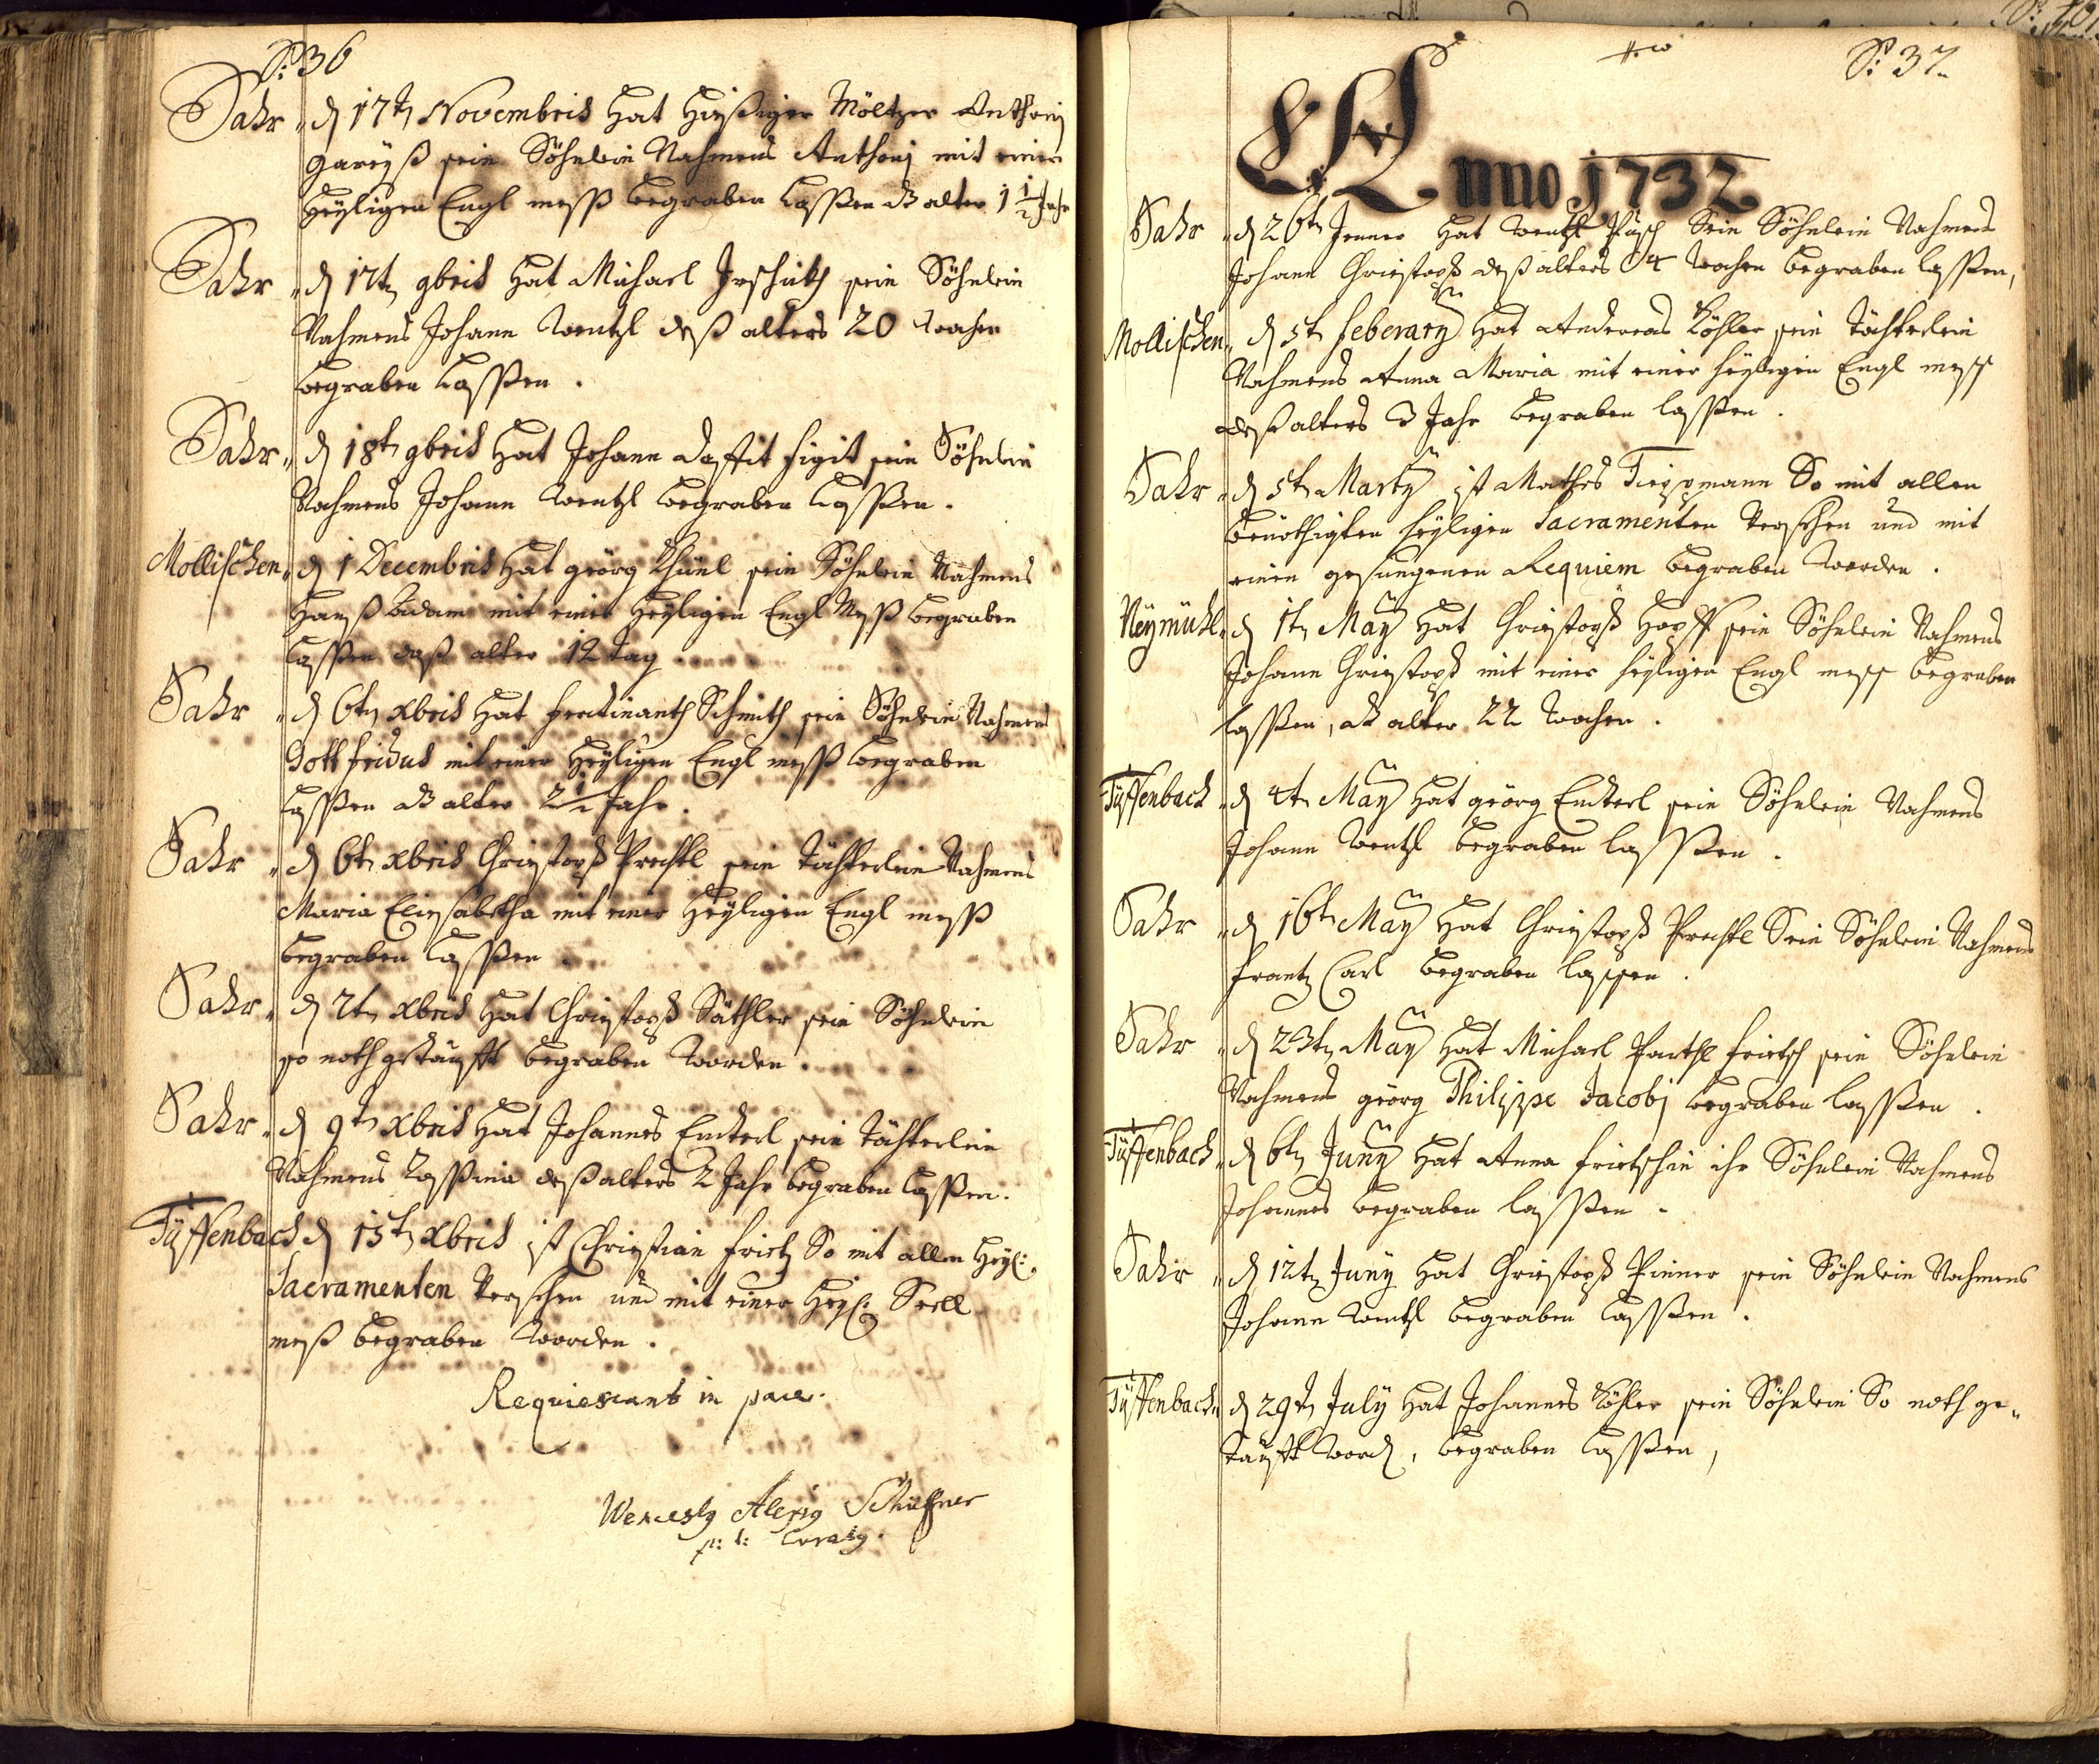 S: 36
Sahr „ dl 17tn Novembris hat hießiger Möltzer Anthonj
Gareyß sein Söhnlein Nahmens Anthonj mit einer
Heyligen Engl meß begraben laßen alter 1 1/2 Jahr
Sahr „ dl 17tn 9bris hat Michael sein Söhnlein
Nahmens Johann Wentzl deß alters 20 Wochen
begraben laßen .
Sahr „ dl 18tn 9bris hat Johann sein Söhnlein
Nahmens Johann Wentzl begraben laßen .
Mollischen „ dl 1 Decembris hat görg sein Söhnlein Nahmens
Hanß Adam mit einer Heyligen Engl Meß begraben
laßen deß alter 12 tag
Sahr „ dl 6tn xbris hat Ferdinanth Schmith sein Söhnlein Nahmens
Gottfridus mit einer Heyligen Engl meß begraben
laßen alter 2 1/2 Jahr .
Sahr „ dl 6tn xbris Christoph Prechtl sein Töchterlein Nahmens
Maria Eliesabetha mit einer Heyligen Engl meß
begraben laßen .
Sahr „ dl 7tn xbris hat Christoph Sättler sein Söhnlein
so noth getäufft begraben worden .
Sahr „ dl 9tn xbris hat Johannes Enderl sein Töchterlein
Nahmens Roßina deß alters 2 Jahr begraben laßen .
Tüffenbach dl 15tn xbris ist Christian Fritz So mit allen Heyl:
Sacramenten Versehen und mit einer Heyl: Seell
meß begraben worden .
Requiescant in pace.
Wencesl9 Alexi9 Schüffner
p: t: Curat9.
S: 37
Anno 1732
Sahr „ dl 26tn Jenner hat Wentzl Püsch Sein Söhnlein Nahmens
Johann Christoph deß alters 4 Wochen begraben laßen,
Mollischen „ dl 5tn feberary hat Andereas Köhler sein Töchterlein
Nahmens Anna Maria mit einer Heyligen Engl meß
deß alters 3 Jahr begraben laßen .
Sahr „ dl 5tn Marty ist Mathes Tieppmann So mit allen
benöthigten Heyligen Sacramenten Versehen und mit
einen gesungenen Requiem begraben worden .
Neymühl „ dl 1tn May hat Christoph Hopff sein Söhnlein Nahmens
Johann Christoph mit einer Heyligen Engl meß begraben
laßen, alter 22 Wochen .
Tüffenbach „ dl 4tn May hat görg Enderl sein Söhnlein Nahmens
Johann Wentzl begraben laßen .
Sahr „ dl 16tn May hat Christoph Prechtl Sein Söhnlein Nahmens
Frantz Carl begraben lassen .
Sahr „ dl 23tn May hat Michael Parthl Frietsch sein Söhnlein
Nahmens görg Philippe Jacobj begraben laßen .
Tüffenbach „ dl 6tn Juny hat Anna Frietschin ihr Söhnlein Nahmens
Johannes begraben laßen .
Sahr „ dl 12tn Juny hat Christoph Pinner sein Söhnlein Nahmens
Johann Wentzl begraben laßen .
Tüffenbach „ dl 29tn July hat Johannes Köhler sein Söhnlein So noth ge„
täufft word, begraben laßen,